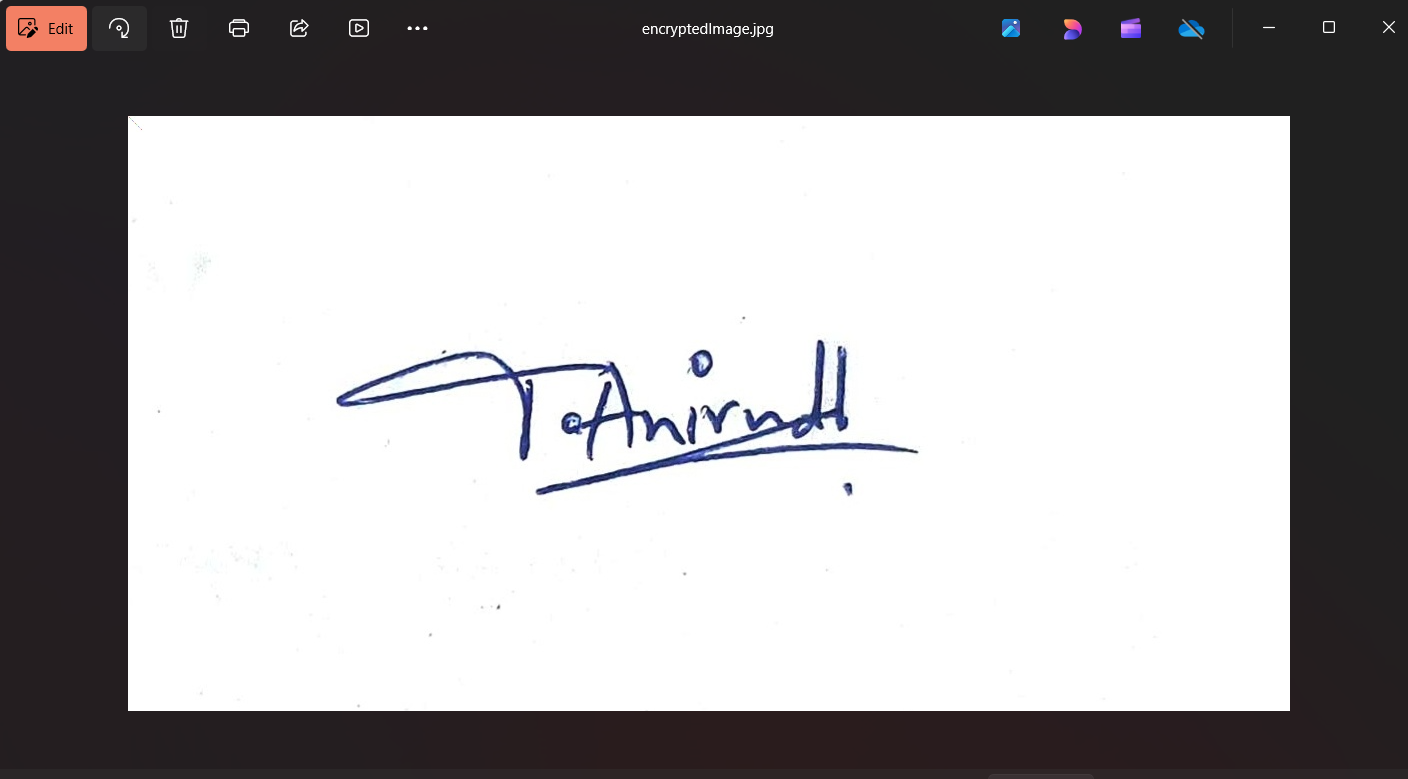 Edit
encryptedImage.jpg
T. Anirudh